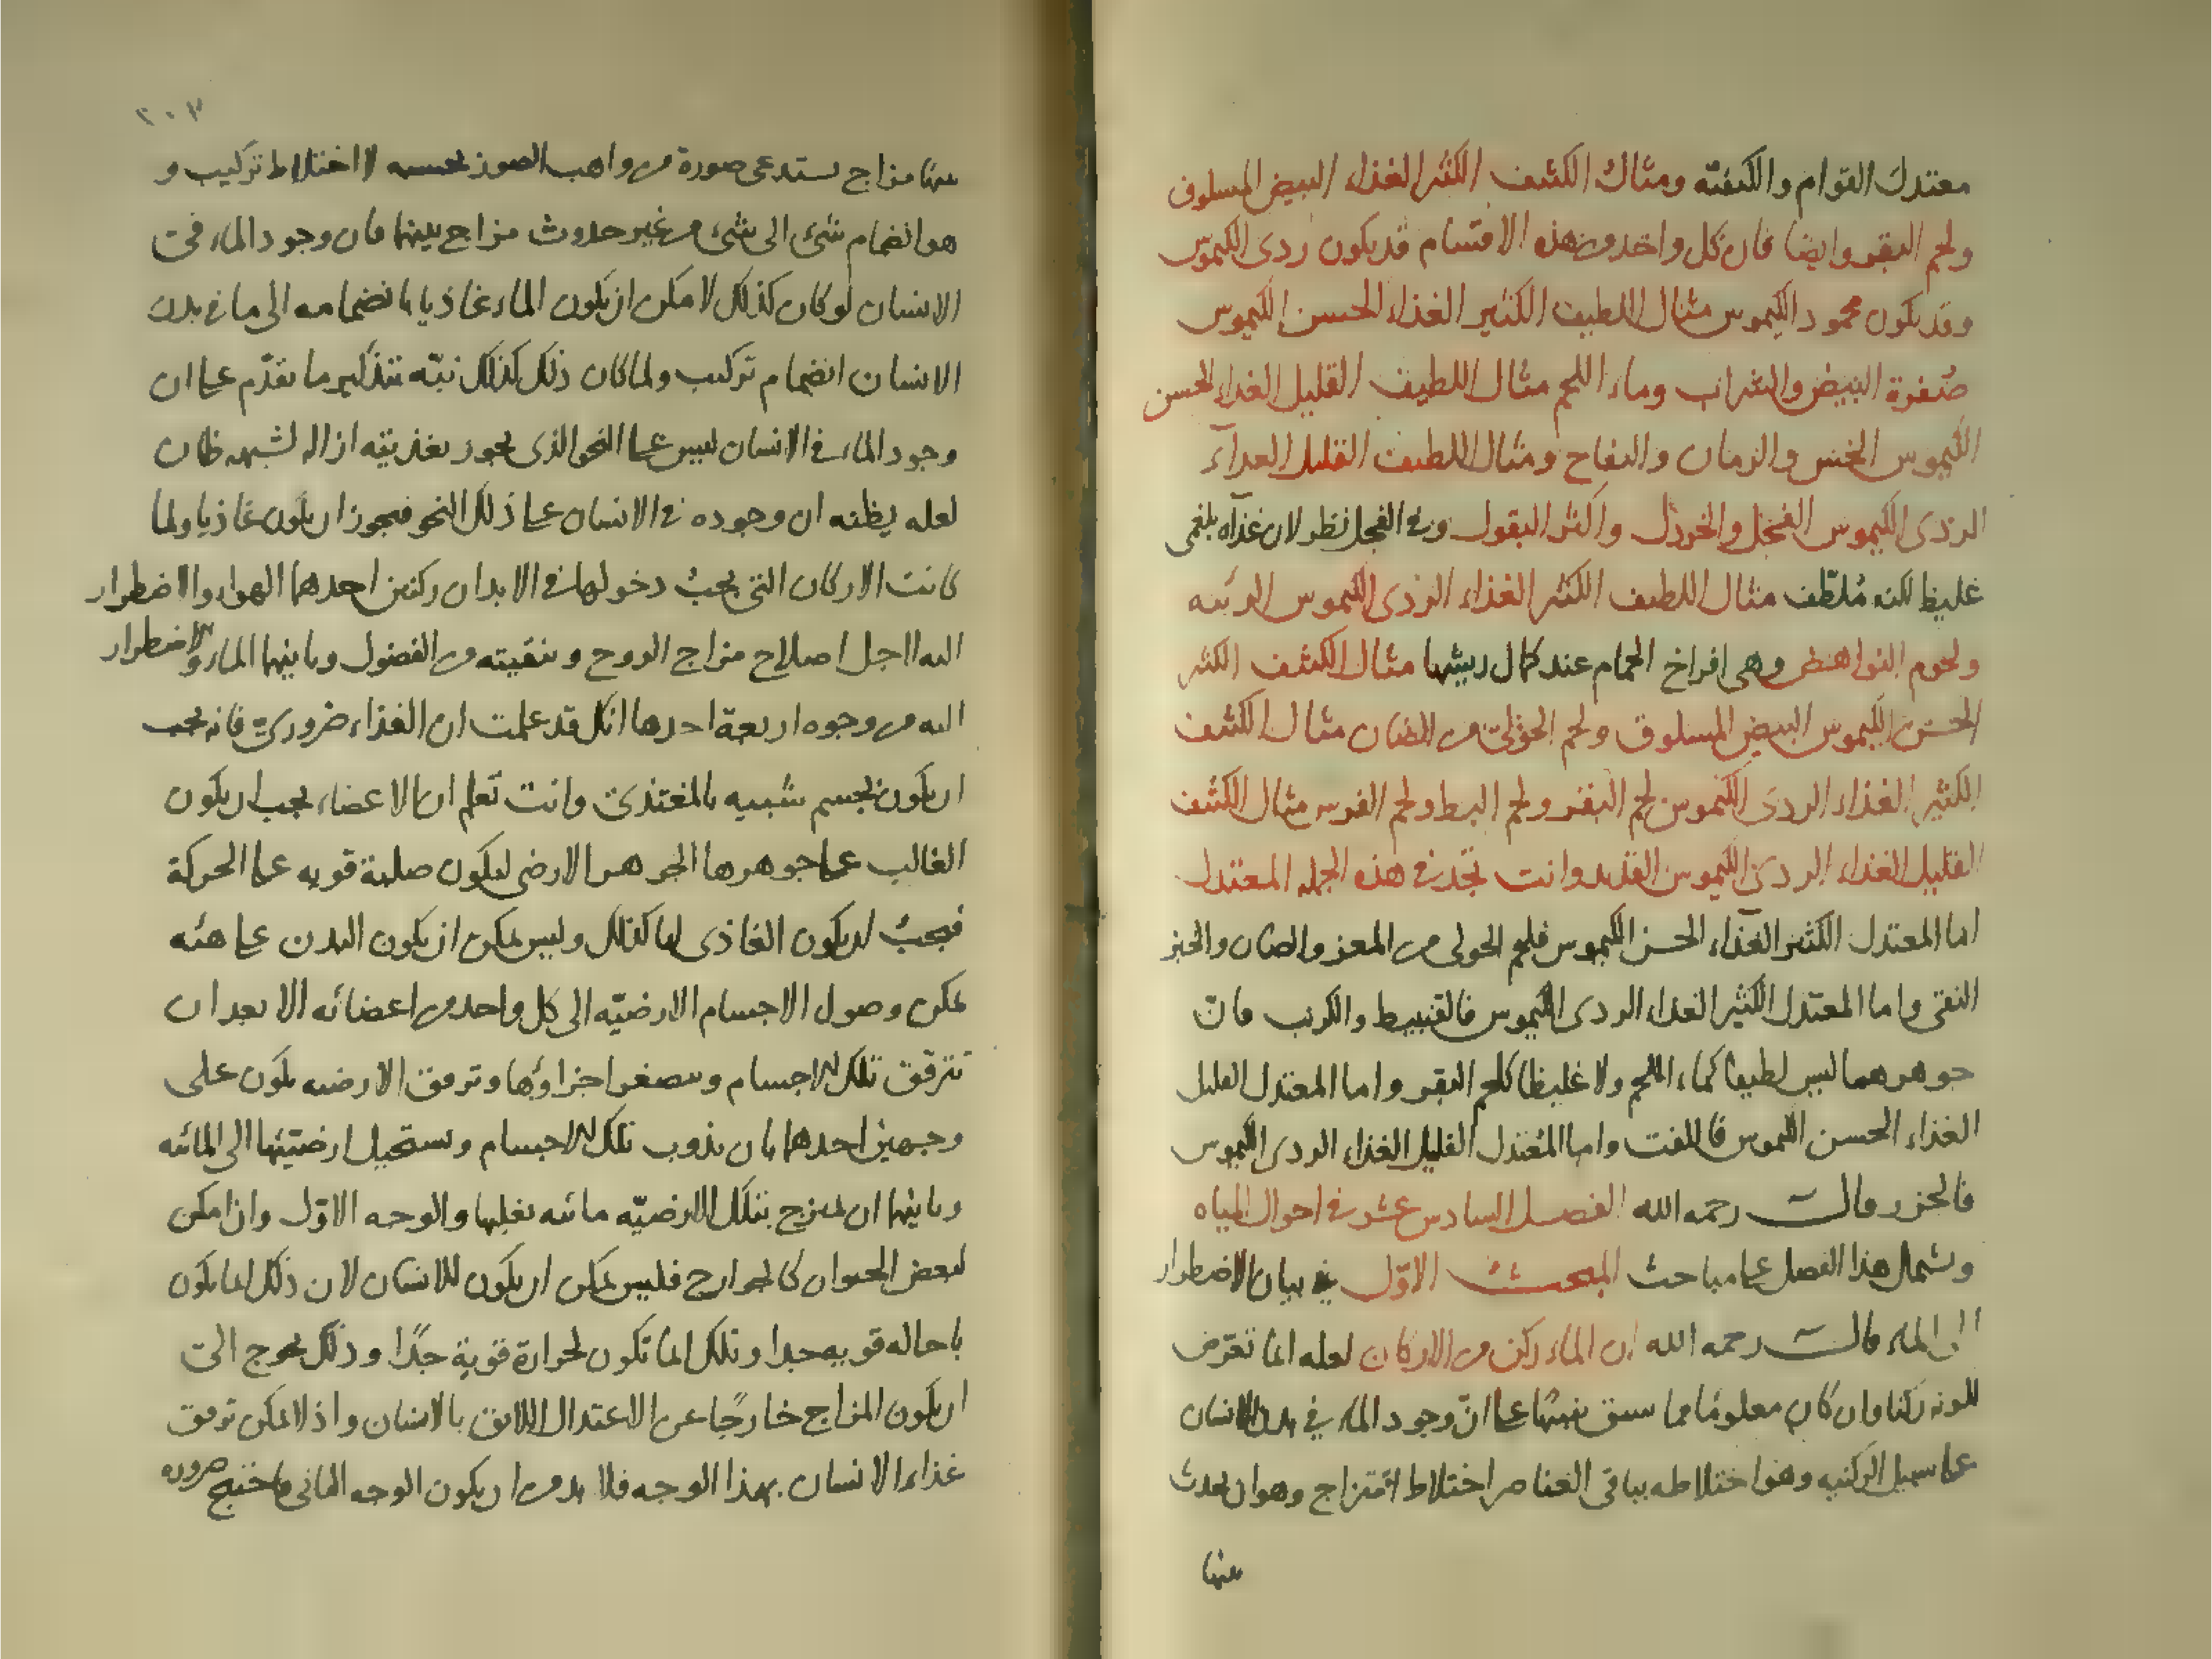 معتدل القوام والكيفيّة ومثال الكثيف الكثير الغذاء البيض المسلوق
ولحم البقر وايضا فان كل واحد من هذه الاقسام قد يكون ردى الكيموس
وقد يكون محمود الكيموس مثال اللطيف الكثير الغذاء الحسن الكيموس
صُفرة البيض والشراب وماء اللحم مثال اللطيف القليل الغذاء الحسن
الكيموس الخس والرمان والتفاح ومثال اللطيف القليل الغذاء
الردى الكيموس الفجل والخردل واكثر البقول وفى الفجل نظر لان غذاه بلغمى
غليظ لكنه مُلطّف مثال اللطيف الكثير الغذاء الردى الكيموس الريّه
ولحوم النواهض وهى افراخ الحمام عند كمال ريشها مثال الكثيف الكثير
الحسن الكيموس البيض المسلوق ولحم الحَوْلىّ من الضان مثال الكثيف
الكثير الغذاء الردى الكيموس لحم البقر ولحم البط ولحم الفرس مثال الكثيف
القليل الغذاء الردى الكيموس القديد وانت تجد فى هذه الجمله المعتدل
اما المعتدل الكثير الغذاء الحسن الكيموس فلحم الحولى من المعز والضان والخبز
النقى واما المعتدل الكثير الغذاء الردى الكيموس فالقنبيط والكرنب فانّ
جوهرهما ليس لطيفا كماء اللحم ولا غليظا كلحم البقر واما المعتدل القليل
الغذاء الحسن الكيموس فاللفت واما المُعتدل القليل الغذاء الردى الكيموس
فالجزر قال رحمه الله الفصل السادس عشر فى احوال المياه
وشمل هذا الفصل على مباحث المبحث الاوّل فى بيان الاضطرار
الى الماء قال رحمه الله ان الماء ركن من الاركان لعله انما تعرّض
لكونه ركنا وان كان معلومًا مما سبق تنبيهًا على انّ وجود الماء فى بدن الانسان
على سبيل الركنيه وهو اختلاطه بباقى العناصر اختلاط امتزاج وهو ان يحدث
منها
٢٠٧
منها مزاج يستدعى صورة من واهب الصور بحسبه لا اختلاط تركيب و
هو انضمام شئ الى شئ من غير حدوث مزاج بينها فان وجود الماء فى
الانسان لو كان كذلك لامكن ان يكون الماء غاذيا بانضمامه الى ما فى بدن
الانسان انضمام تركيب ولما كان ذلك كذلك نبّه بتذكير ما تقدّم على ان
وجود الماء فى الانسان ليس على النحو الذى يجوز تغذيته ازاله لشبهه ظان
لعله يظنه ان وجوده فى الانسان على ذلك النحو فيجوز ان يكون غاذيا ولما
كانت الاركان التى يجبُ دخولها فى الابدان ركنين احدهما الهواء والاضطرار
اليه لاجل اصلاح مزاج الروح وتنقيته من الفضول وثانيها الماء والاضطرار
اليه من وجوه اربعة احدها انك قد علمت ان الغذاء ضرورىّ فانه يجب
ان يكون بجسم شبيه بالمغتذى وانت تعلم ان الاعضاء يجب ان يكون
الغالب على جوهرها الجوهر الارضى ليكون صلبة قويه على الحركة
فيجبُ ان يكون الغاذى لها كذلك وليس يمكن ان يكون البدن على هيئه
يمكن وصول الاجسام الارضيّه الى كل واحد من اعضائه الا بعد ان
تترقق تلك الاجسام وتصغر اجزاؤها وترقق الارضيه يكون على
وجهين احدهما بان يذوب تلك الاجسام وتستحيل ارضيّتها الى المائيه
وثانيها ان يمتزج بتلك الارضيّه مائيه تغلبها والوجه الاوّل وان امكن
لبعض الحيوان كالجوارح فليس يمكن ان يكون للانسان لان ذلك انما يكون
باحاله قويه جدا وتلك انما تكون لحرارة قويةٍ جدًا وذلك يحوج الى
ان يكون المزاج خارجًا عن الاعتدال اللائق بالانسان واذ لا يمكن ترقق
غذاء الانسان بهذا الوجه فلا بد من ان يكون الوجه الثانى فاحتيج ضرورة